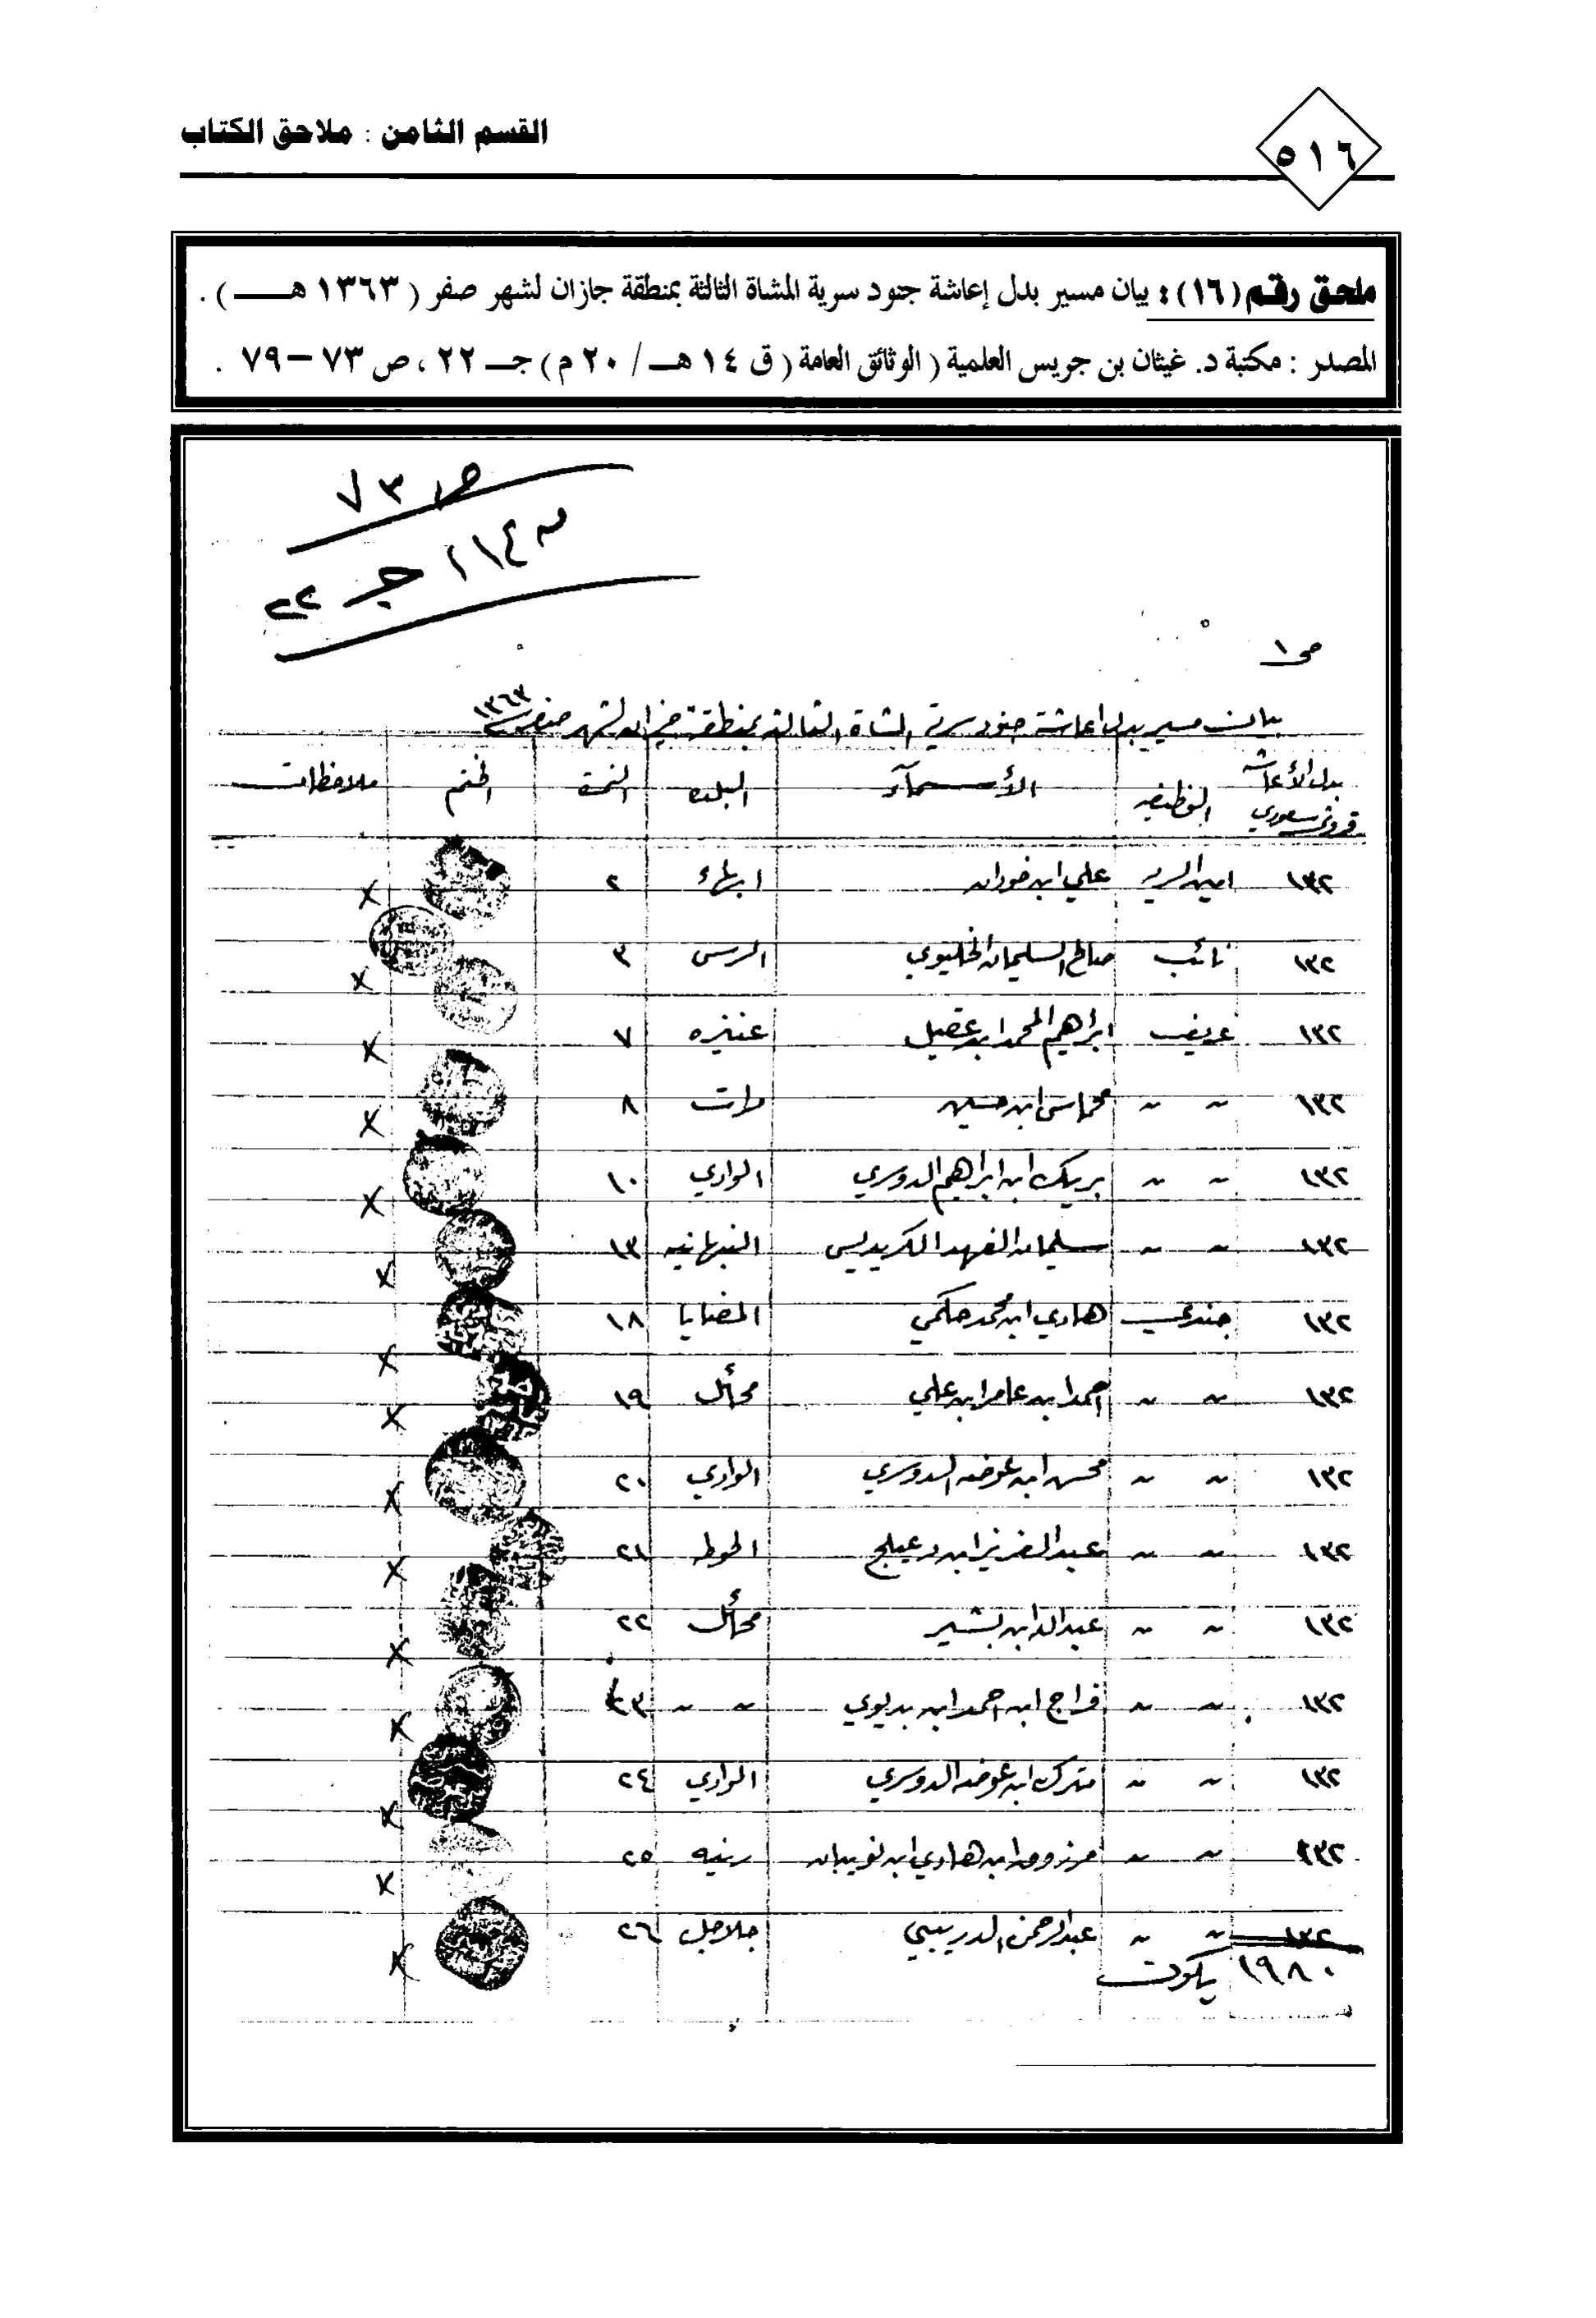 القسم الثامن : ملاحق الكتاب
٥١٦
ملحق رقم (١٦) : بيان مسير بدل إعاشة جنود سرية المشاة الثالثة بمنطقة جازان لشهر صفر ( ١٣٦٣ هــــ ) .
المصدر : مكتبة د. غيثان بن جريس العلمية ( الوثائق العامة ( ق ١٤ هــ / ٢٠ م ) جــ ٢٢ ، ص ٧٣ – ٧٩ .
ص ٧٣
١١٤ جـ ٢٢
ص ١
بيان مسير بدل اعاشة جنود سرية المشاة الثالثة بمنطقة جيزان لشهر صفر ١٣٦٣
بدل الأعاشه قروش سعودي الوظيفه الأسمآء البلده النمرة الختم ملاحظات
١٣٢ امين السريه علي ابن ابهاء ٢
١٣٢ نائب صالح السليمان الخليوي الرس ٣
١٣٢ عريف ابراهيم المحمد ابن عقيل عنيزه ٧
١٣٢ ~ ~ محماس ابن حسين مرات ٨
١٣٢ ~ ~ بريك ابن ابراهيم الدوسري الوادي ١٠
١٣٢ ~ ~ سليمان الفهد الكريديس النبهانيه ١٣
١٣٢ جندي هادي ابن محمد حكمي المضايا ١٨
١٣٢ ~ ~ احمد ابن عامر ابن علي محائل ١٩
١٣٢ ~ ~ محسن ابن عوضه الدوسري الوادي ٢٠
١٣٢ ~ ~ عبد العزيز ابن دعيلج الحوطه ٢١
١٣٢ ~ ~ عبدالله ابن بشير محائل ٢٢
١٣٢ ~ ~ فراج ابن احمد ابن بديوي ~ ~ ٢٣
١٣٢ ~ ~ مترك ابن عوضه الدوسري الوادي ٢٤
١٣٢ ~ ~ مرزوق ابن هادي ابن ثويبان رنيه ٢٥
١٣٢ ~ ~ عبدالرحمن الدريبي جلاجل ٢٦
١٩٨٠ يكون